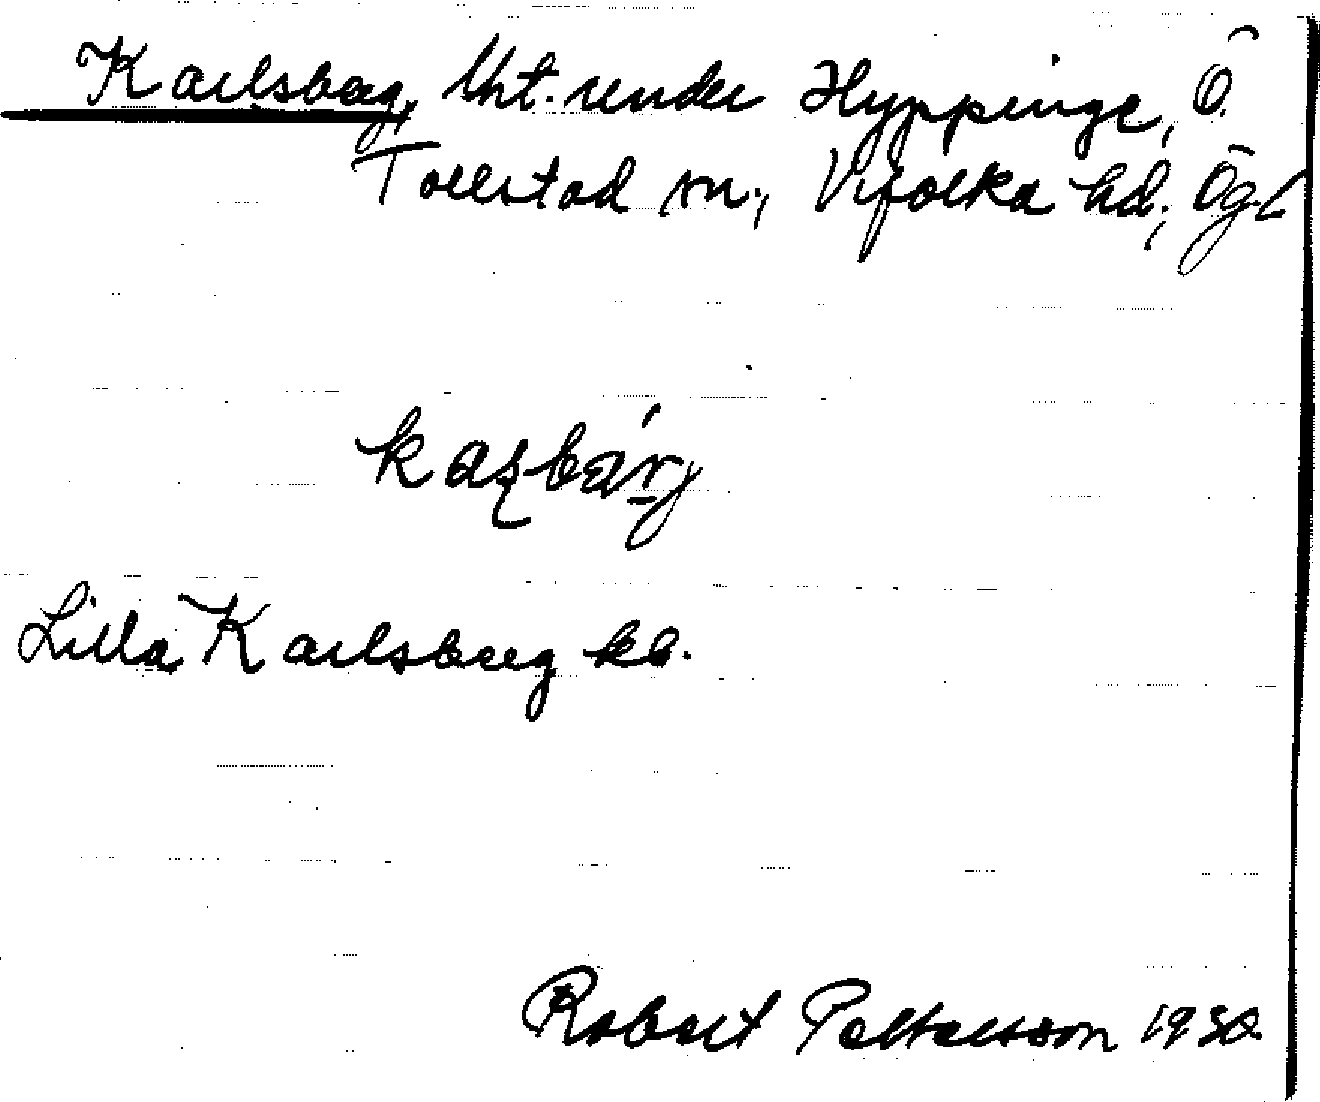 Karlsberg, lht. under Hyppinge, Ö.
Tollstad sn., Vifolka hd., Ög.
kaʂbárj
Lilla Karlsberg kb.
Robert Pettersson 1930